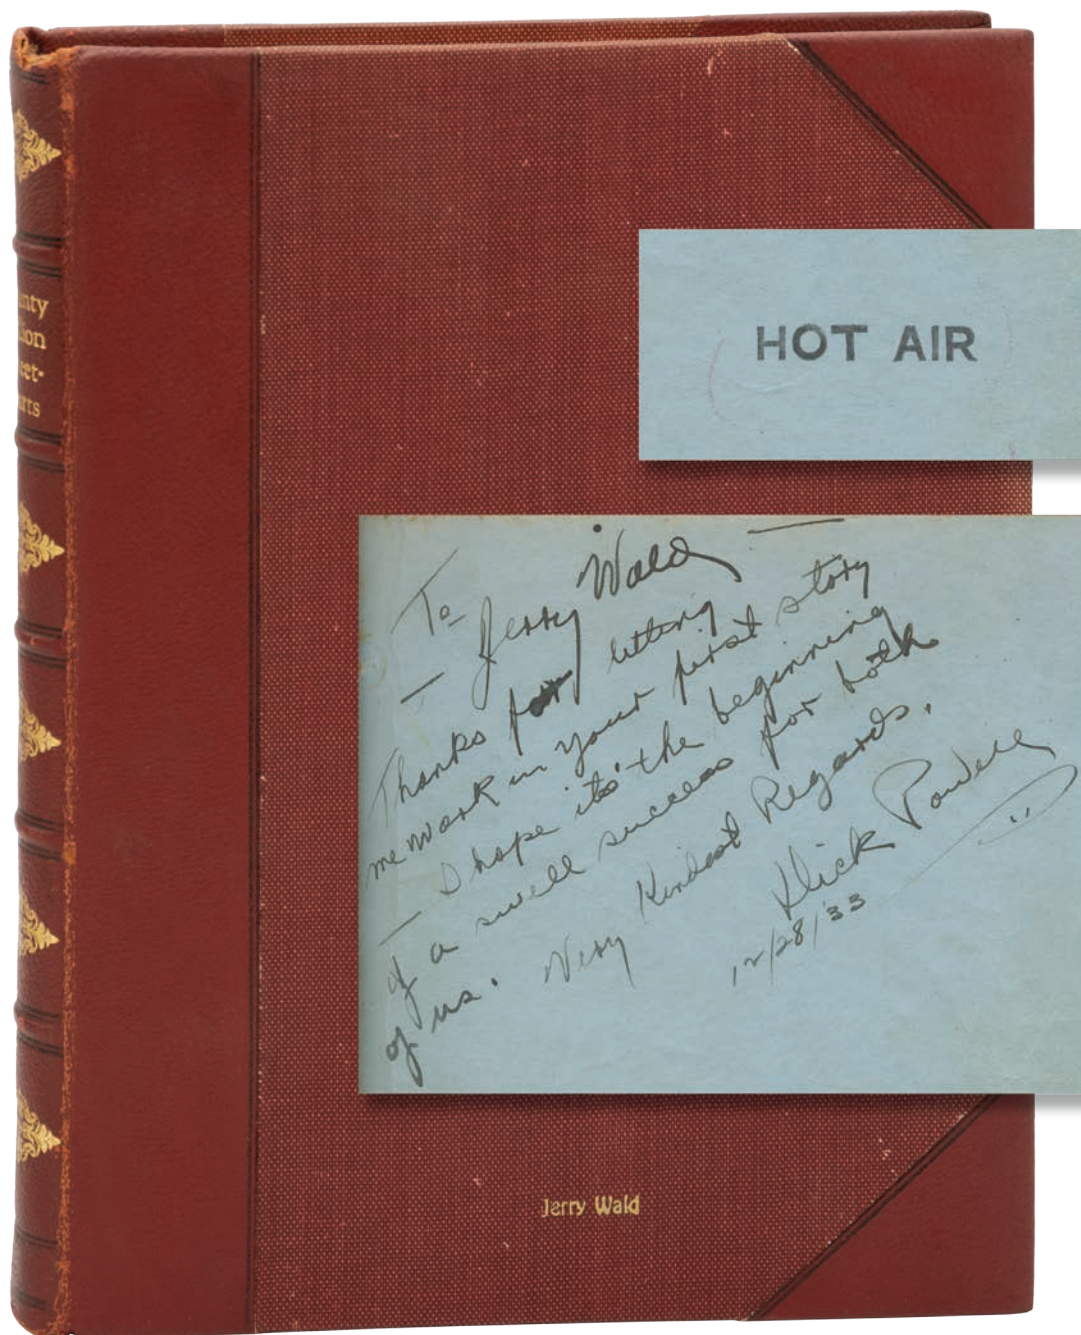 HOT AIR
To
— Jerry Wald —
Thanks for letting
me work in your first story
— I hope its the beginning
of a swell success for both
of us. Very Kindest Regards.
Dick Powell
12/28/33
Jerry Wald